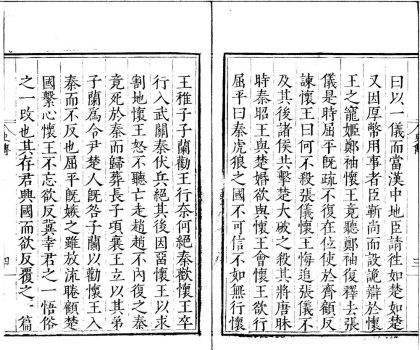 曰以一儀而當漢中地臣請往如楚如楚
又因厚幣用事者臣靳尚而設詭辯於懷
王之寵姬鄭袖懷王竟聽鄭袖復釋去張
儀是時屈平既疏不復在位使於齊顧反
諫懷王曰何不殺張儀懷王悔追張儀不
及其後諸侯共擊楚大破之殺其將唐昧
時秦昭王與楚婚欲與懷王會懷王欲行
屈平曰秦虎狼之國不可信不如無行懷
三
王稚子子蘭勸王行奈何絕秦歡懷王卒
行入武關秦伏兵絕其後因留懷王以求
割地懷王怒不聽亡走趙趙不內復之秦
竟死於秦而歸葬長子頃襄王立以其弟
子蘭為令尹楚人既咎子蘭以勸懷王入
秦而不反也屈平既嫉之雖放流睠顧楚
國繫心懷王不忘欲反冀幸君之一悟俗
之一改也其存君興國而欲反覆之一篇
四